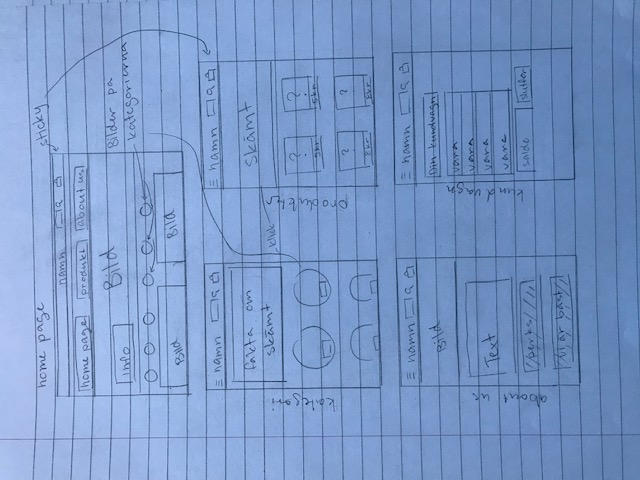 home page
sticky
namn
home page produkt about us
Bild
info
Bilder på
kategorierna
Bild Bild
namn
fakta om
skämt
kategori
klick
namn
Skämt
? ?
5kr 5kr
? ?
5kr 5kr
produkter
namn
Bild
Text
perks
vi är bäst
about us
namn
Din kundvagn
vara
vara
vara
vara
saldo slutför
kundvagn